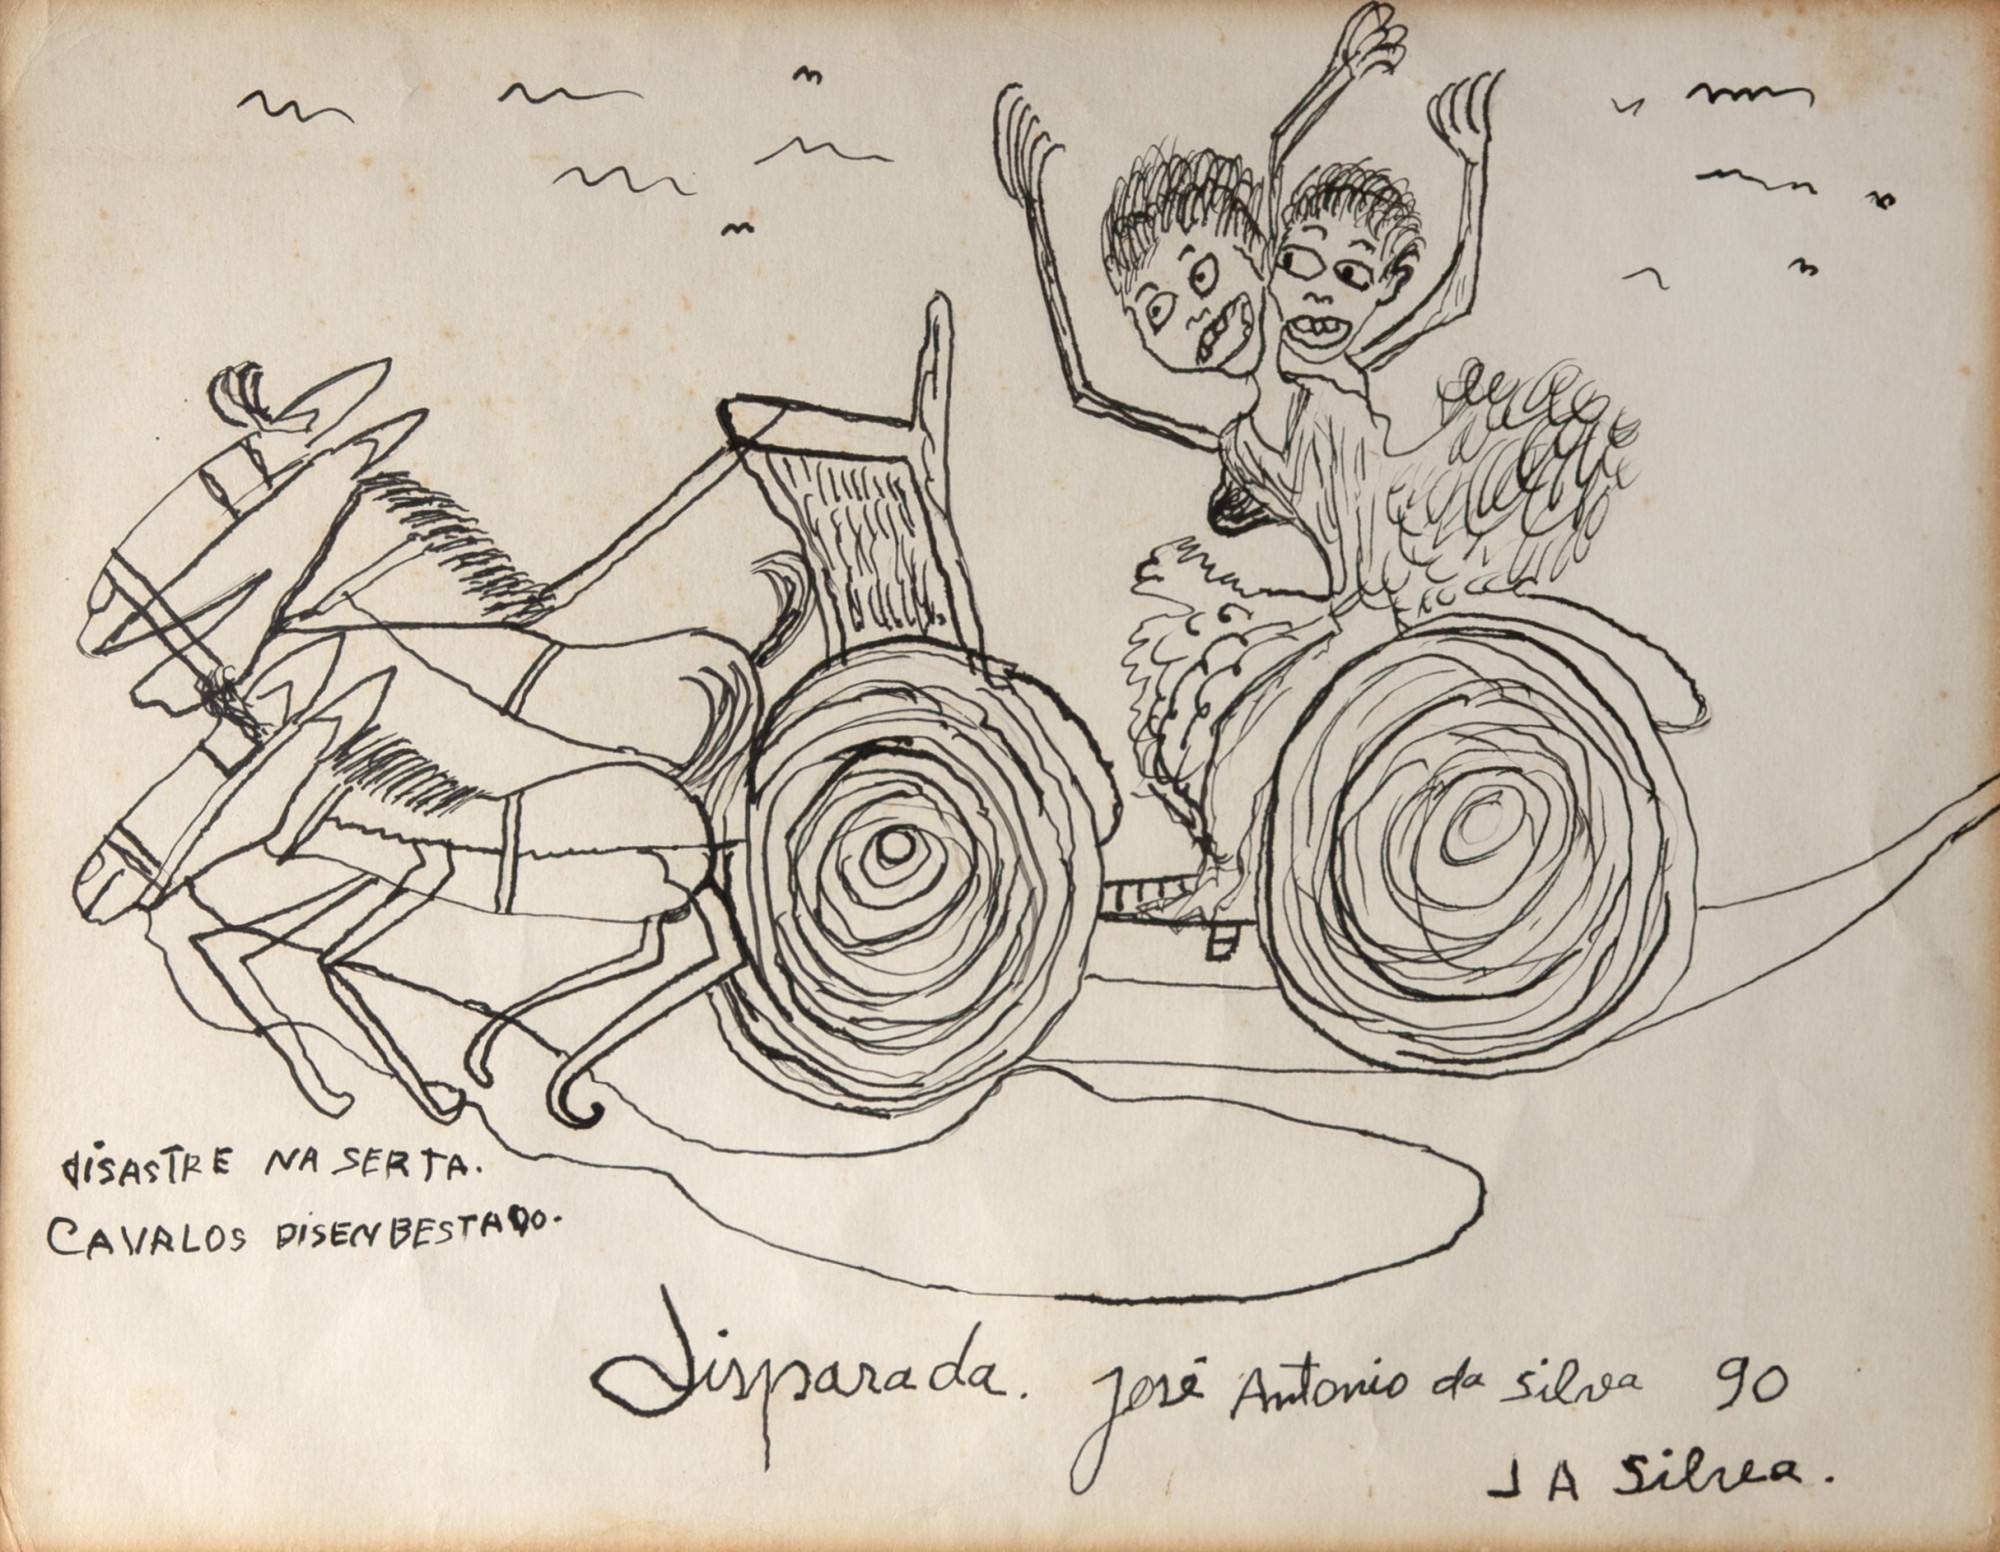 DISASTRE NA SERTA.
CAVALOS DISENBESTADO.
disparada. José Antonio da Silva 90
J A Silva.